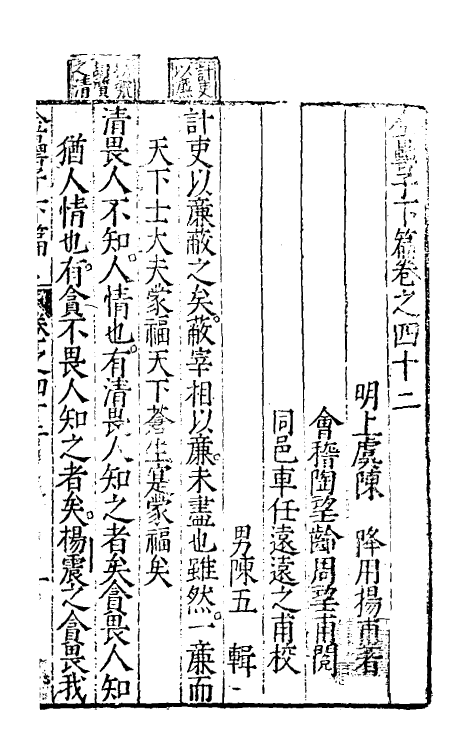 金罍子下篇卷之四十二
明上虞陳　降用揚甫著
會稽陶望齡周望甫閱
同邑車任遠遠之甫校
男陳五　輯
計吏以廉
計吏以廉蔽之矣。蔽宰相以廉。未盡也雖然。一廉而
天下士大夫蒙福天下蒼生寔蒙福矣
之清
清畏人不知。人情也。有清畏人知之者矣貪畏人知
猶人情也。有貪不畏人知之者矣。楊震之貪畏我
金罍子下篇　卷之四十二